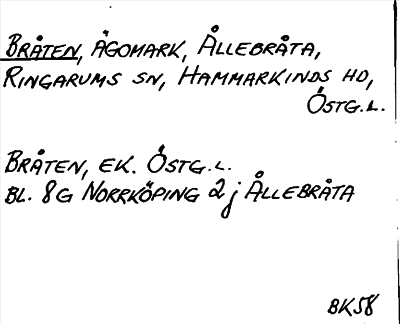 BRÅTEN, ÄGOMARK, ÅLLEBRÅTA,
RINGARUMS SN, HAMMARKINDS HD,
ÖSTG.L.
BRÅTEN, EK. ÖSTG.L.
BL. 8G NORRKÖPING 2j ÅLLEBRÅTA
BK58